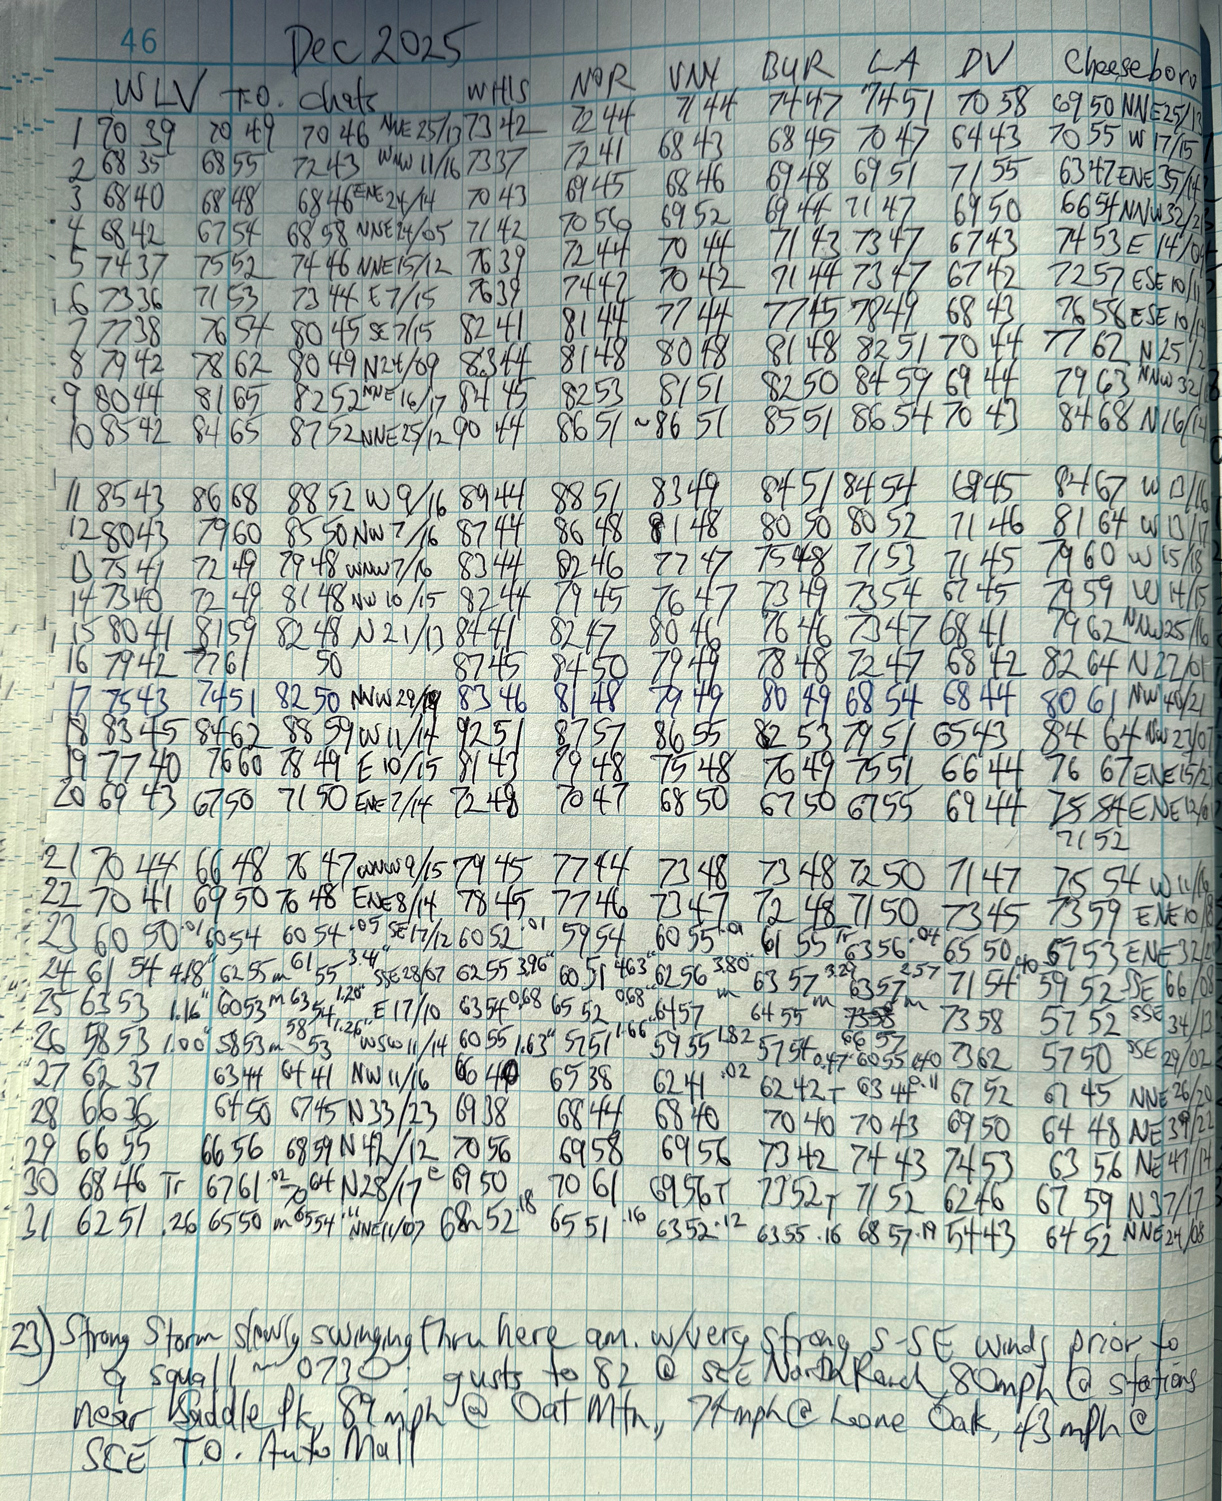 46 Dec 2025
WLV T.O. Chats WHIS NOR VNY BUR LA DV Cheeseboro
1 70 39 70 49 70 46 NNE 25/13 73 42 72 44 71 44 74 47 74 51 70 58 69 50 NNE 25/13
2 68 35 68 55 72 43 WNW 11/16 73 37 72 41 68 43 68 45 70 47 64 43 70 55 W 17/15
3 68 40 68 48 68 46 ENE 24/14 70 43 69 45 68 46 69 48 69 51 71 55 63 47 ENE 35/14
4 68 42 67 54 68 58 NNE 24/05 71 42 70 56 69 52 69 44 71 47 69 50 66 54 NNW 32/
5 74 37 75 52 74 46 NNE 15/12 76 39 72 44 70 44 71 43 73 47 67 43 74 53 E 14/
6 73 36 71 53 73 44 E 7/15 76 39 74 42 70 42 71 44 73 47 67 42 72 57 ESE 10/
7 77 38 76 54 80 45 SE 7/15 82 41 81 44 77 44 77 45 78 49 68 43 76 58 ESE 10/
8 79 42 78 62 80 49 N 24/09 83 44 81 48 80 48 81 48 82 51 70 44 77 62 N 25/
9 80 44 81 65 82 52 NNE 16/17 84 45 82 53 81 51 82 50 84 59 69 44 79 63 NNW 32/
10 85 42 84 65 87 52 NNE 25/12 90 44 86 51 ~86 51 85 51 86 54 70 43 84 68 N 16/14
11 85 43 86 68 88 52 W 9/16 89 44 88 51 83 49 84 51 84 54 69 45 84 67 W 13/16
12 80 43 79 60 85 50 NW 7/16 87 44 86 48 81 48 80 50 80 52 71 46 81 64 W 13/17
13 75 41 72 49 79 48 WNW 7/16 83 44 82 46 77 47 75 48 71 53 71 45 79 60 W 15/18
14 73 40 72 49 81 48 NW 10/15 82 44 79 45 76 47 73 49 73 54 67 45 79 59 W 14/15
15 80 41 81 59 82 48 N 21/13 84 41 82 47 80 46 76 46 73 47 68 41 79 62 NNW 25/16
16 79 42 77 61 50 87 45 84 50 79 49 78 48 72 47 68 42 82 64 N 22/01
17 75 43 74 51 82 50 NNW 29/ 83 46 81 48 79 49 80 49 68 54 68 44 80 61 NW 40/21
18 83 45 84 62 88 59 W 11/14 92 51 87 57 86 55 82 53 79 51 65 43 84 64 NW 23/07
19 77 40 76 60 78 49 E 10/15 81 43 79 48 75 48 76 49 75 51 66 44 76 67 ENE 15/
20 69 43 67 50 71 50 ENE 7/14 72 48 70 47 68 50 67 50 67 55 69 44 75 54 ENE 12/
71 52
21 70 44 66 48 76 47 WNW 9/15 79 45 77 44 73 48 73 48 72 50 71 47 75 54 W 11/
22 70 41 69 50 76 48 ENE 8/14 78 45 77 46 73 47 72 48 71 50 73 45 73 59 ENE 10/
23 60 50 .01 60 54 60 54 .05 SE 17/12 60 52 .01 59 54 60 55 .01 61 55 Tr 63 56 .04 65 50 67 53 ENE 32/
24 61 54 4.18" 62 55 m 61 55 3.41" SSE 28/07 62 55 3.96" 60 51 4.63" 62 56 3.80" 63 57 3.29 63 57 2.57 71 54 .40 59 52 SSE 66/08
25 63 53 1.16" 60 53 m 63 54 1.20" E 17/10 63 54 0.68 65 52 0.68" 64 57 m 64 55 m 66 57 m 73 58 57 52 SSE 34/13
26 58 53 1.00" 58 53 m 58 53 1.26" WSW 11/14 60 55 1.63" 57 51 1.66" 59 55 1.82 57 54 0.47" 60 55 73 62 57 50 SSE 29/02
27 62 37 63 44 64 41 NW 11/16 66 40 65 38 62 41 .02 62 42 T 63 44 0.11 67 52 67 45 NNE 26/20
28 66 36 64 50 67 45 N 33/23 69 38 68 44 68 40 70 40 70 43 69 50 64 48 NE 39/22
29 66 55 66 56 68 59 N 42/12 70 56 69 58 69 56 73 42 74 43 74 53 63 56 NE 47/14
30 68 46 Tr 67 61 .02 70 64 N 28/17 e 69 50 70 61 69 56 T 73 52 T 71 52 62 46 67 59 N 37/17
31 62 51 .26 65 50 m 65 54 NNE 11/07 68 52 .18 65 51 .16 63 52 .12 63 55 .16 68 57 .19 54 43 64 52 NNE 24/08
23) Strong Storm slowly swinging thru here am. w/very strong S-SE winds prior to
a squall ~ 0730. gusts to 82 @ SCE North Ranch, 80mph @ stations
near Saddle Pk, 89 mph @ Oat Mtn, 74 mph @ Leone Oak, 43 mph @
SCE T.O. Auto Mall